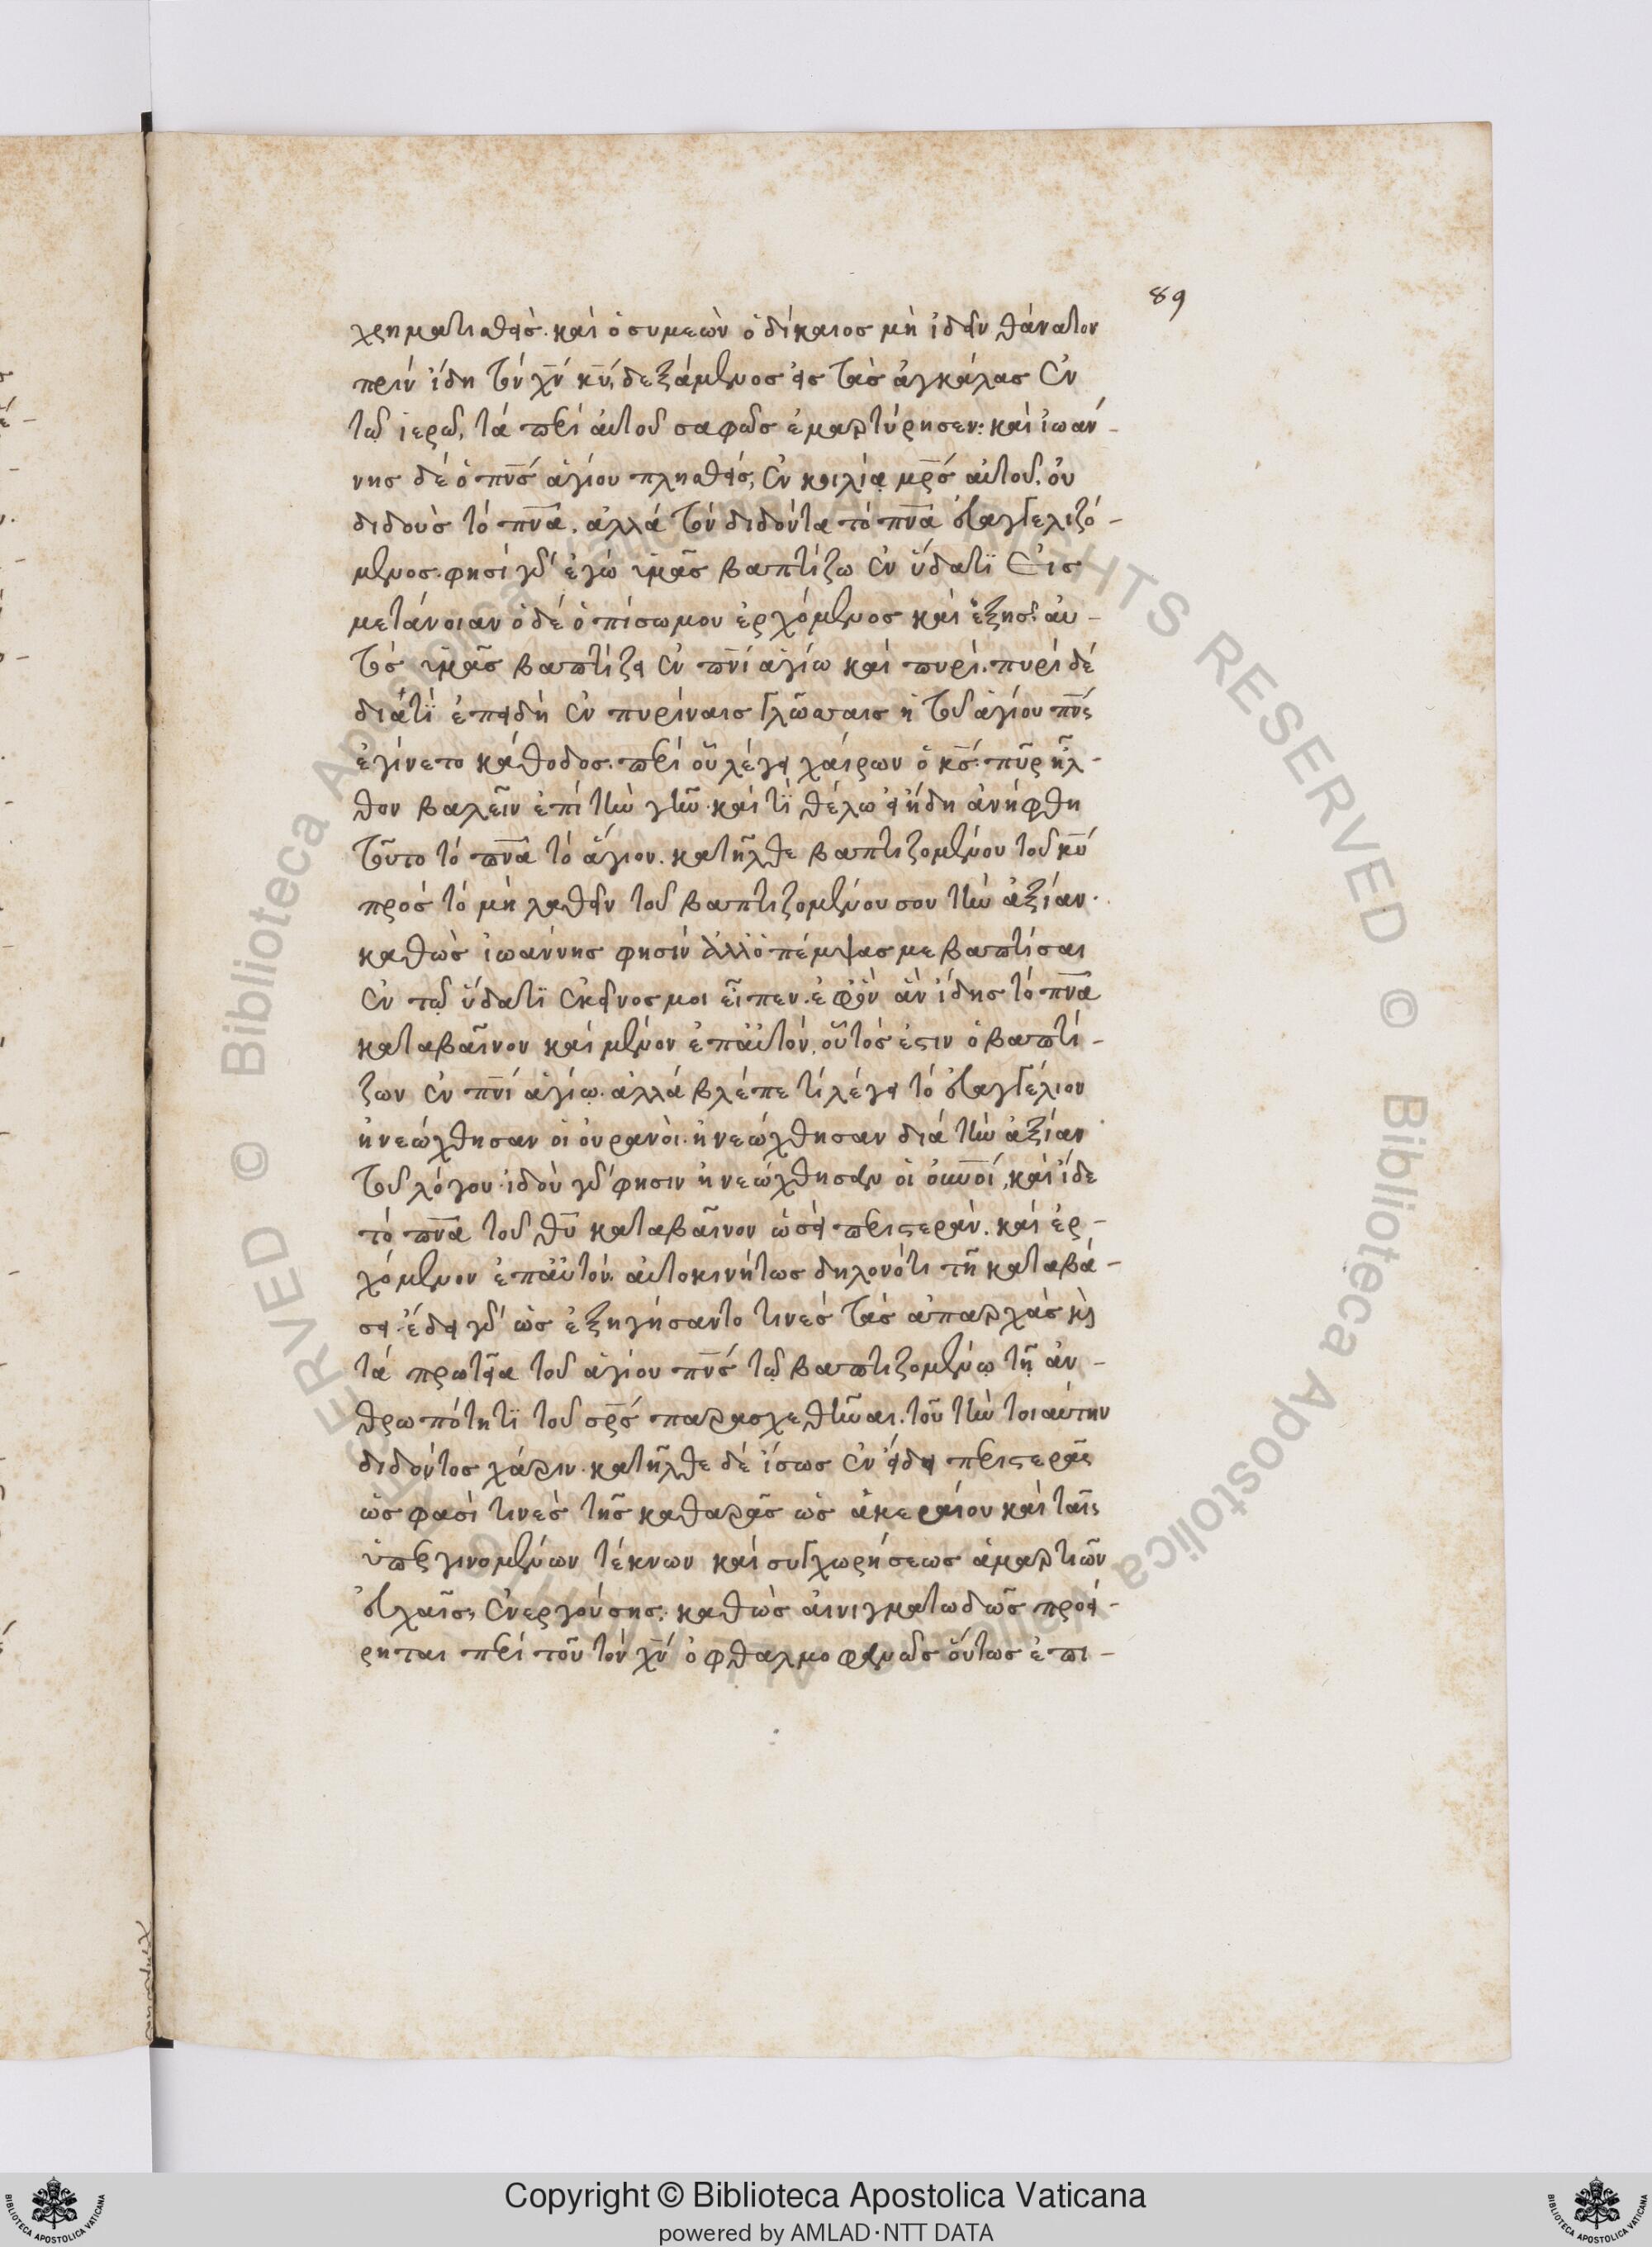 89
χρηματισθείς. καὶ ὁ συμεὼν ὁ δίκαιος μὴ ἰδεῖν θάνατον
πρίν ἴδη τόν χν̄ κν̄, δεξάμενος εἰς τὰς ἀγκάλας ἐν
τῷ ἱερῷ, τά περί αὐτοῦ σαφῶς ἐμαρτύρησεν: καὶ ἰωάν-
νης δέ ὁ πνς̄ ἁγίου πλησθείς, ἐν κοιλίᾳ μρς̄ αὐτοῦ. οὐ
διδοὺς τό πνᾱ. ἀλλά τόν διδόντα τό πνᾱ εὐαγγελιζό-
μενος. φησί γάρ ἐγώ ὑμᾶς βαπτίζω ἐν ὕδατϊ Εἰς
μετάνοιαν ὁ δέ ὀπίσω μου ἐρχόμενος καὶ ἑξῆς. αὐ-
τός ὑμᾶς βαπτίζει ἐν πνῑ ἁγίω καὶ πυρί. πυρί δέ
διάτί ἐπειδή ἐν πυρίναις γλώσσαις ἡ τοῦ ἁγίου πνς̄
ἐγίνετο κάθοδος. περί οὗ λέγει χαίρων ὁ κς̄. πῦρ ἦλ-
θον βαλεῖν ἐπί τήν γῆν. καὶ τί θέλω εἰ ἤδη ἀνήφθη
τοῦτο τό πνᾱ τό ἅγιον. κατῆλθε βαπτιζομένου τοῦ κῡ
πρός τό μή λαθεῖν τοῦ βαπτιζομένου σου τήν ἀξίαν.
καθὼς ἰωάννης φησίν ἀλλ' ὁ πέμψας με βαπτίσαι
ἐν τῷ ὕδατϊ ἐκεῖνος μοι εἶπεν. ἐφ' ὃν ἂν ἴδης τό πνᾱ
καταβαῖνον καί μένον ἐπ' αὐτόν, οὗτός ἐστιν ὁ βαπτί-
ζων ἐν πνῑ ἁγίῳ. ἀλλά βλέπε τί λέγει τό εὐαγγέλιον
ἠνεώχθησαν οἱ οὐρανοὶ. ἠνεώχθησαν διά τήν ἀξίαν
τοῦ λόγου. ἰδοὺ γάρ φησιν ἠνεώχθησαν οἱ οὐνοί, καὶ ἴδε
τό πνᾱ τοῦ θῡ καταβαῖνον ὡσεί περιστεράν. καὶ ἐρ-
χόμενον ἐπ' αὐτόν. αὐτοκινήτως δηλονότι τῆ καταβά-
σει. ἔδει γάρ ὡς ἐξηγήσαντο τινές τάς ἀπαρχάς κὶ
τά πρωτεῖα τοῦ ἁγίου πνς̄ τῷ βαπτιζομένῳ τῇ ἀν-
θρωπότητϊ τοῦ σρς̄ παρασχεθῆναι. τοῦ τήν τοιαύτην
διδόντος χάριν. κατῆλθε δέ ἴσως ἐν εἴδει περιστερᾶς
ὡς φασί τινές τῆς καθαρᾶς ὡς ἀκεραίου καὶ ταῖς
ὑπέρ γινομένων τέκνων καὶ συγχωρήσεως ἁμαρτιῶν
εὐχαῖς, ἐνεργούσης. καθὼς αἰνιγματωδῶς προεί-
ρηται περί τοῦ τόν χν̄ ὀφθαλμοφανῶς οὕτως ἐπι-